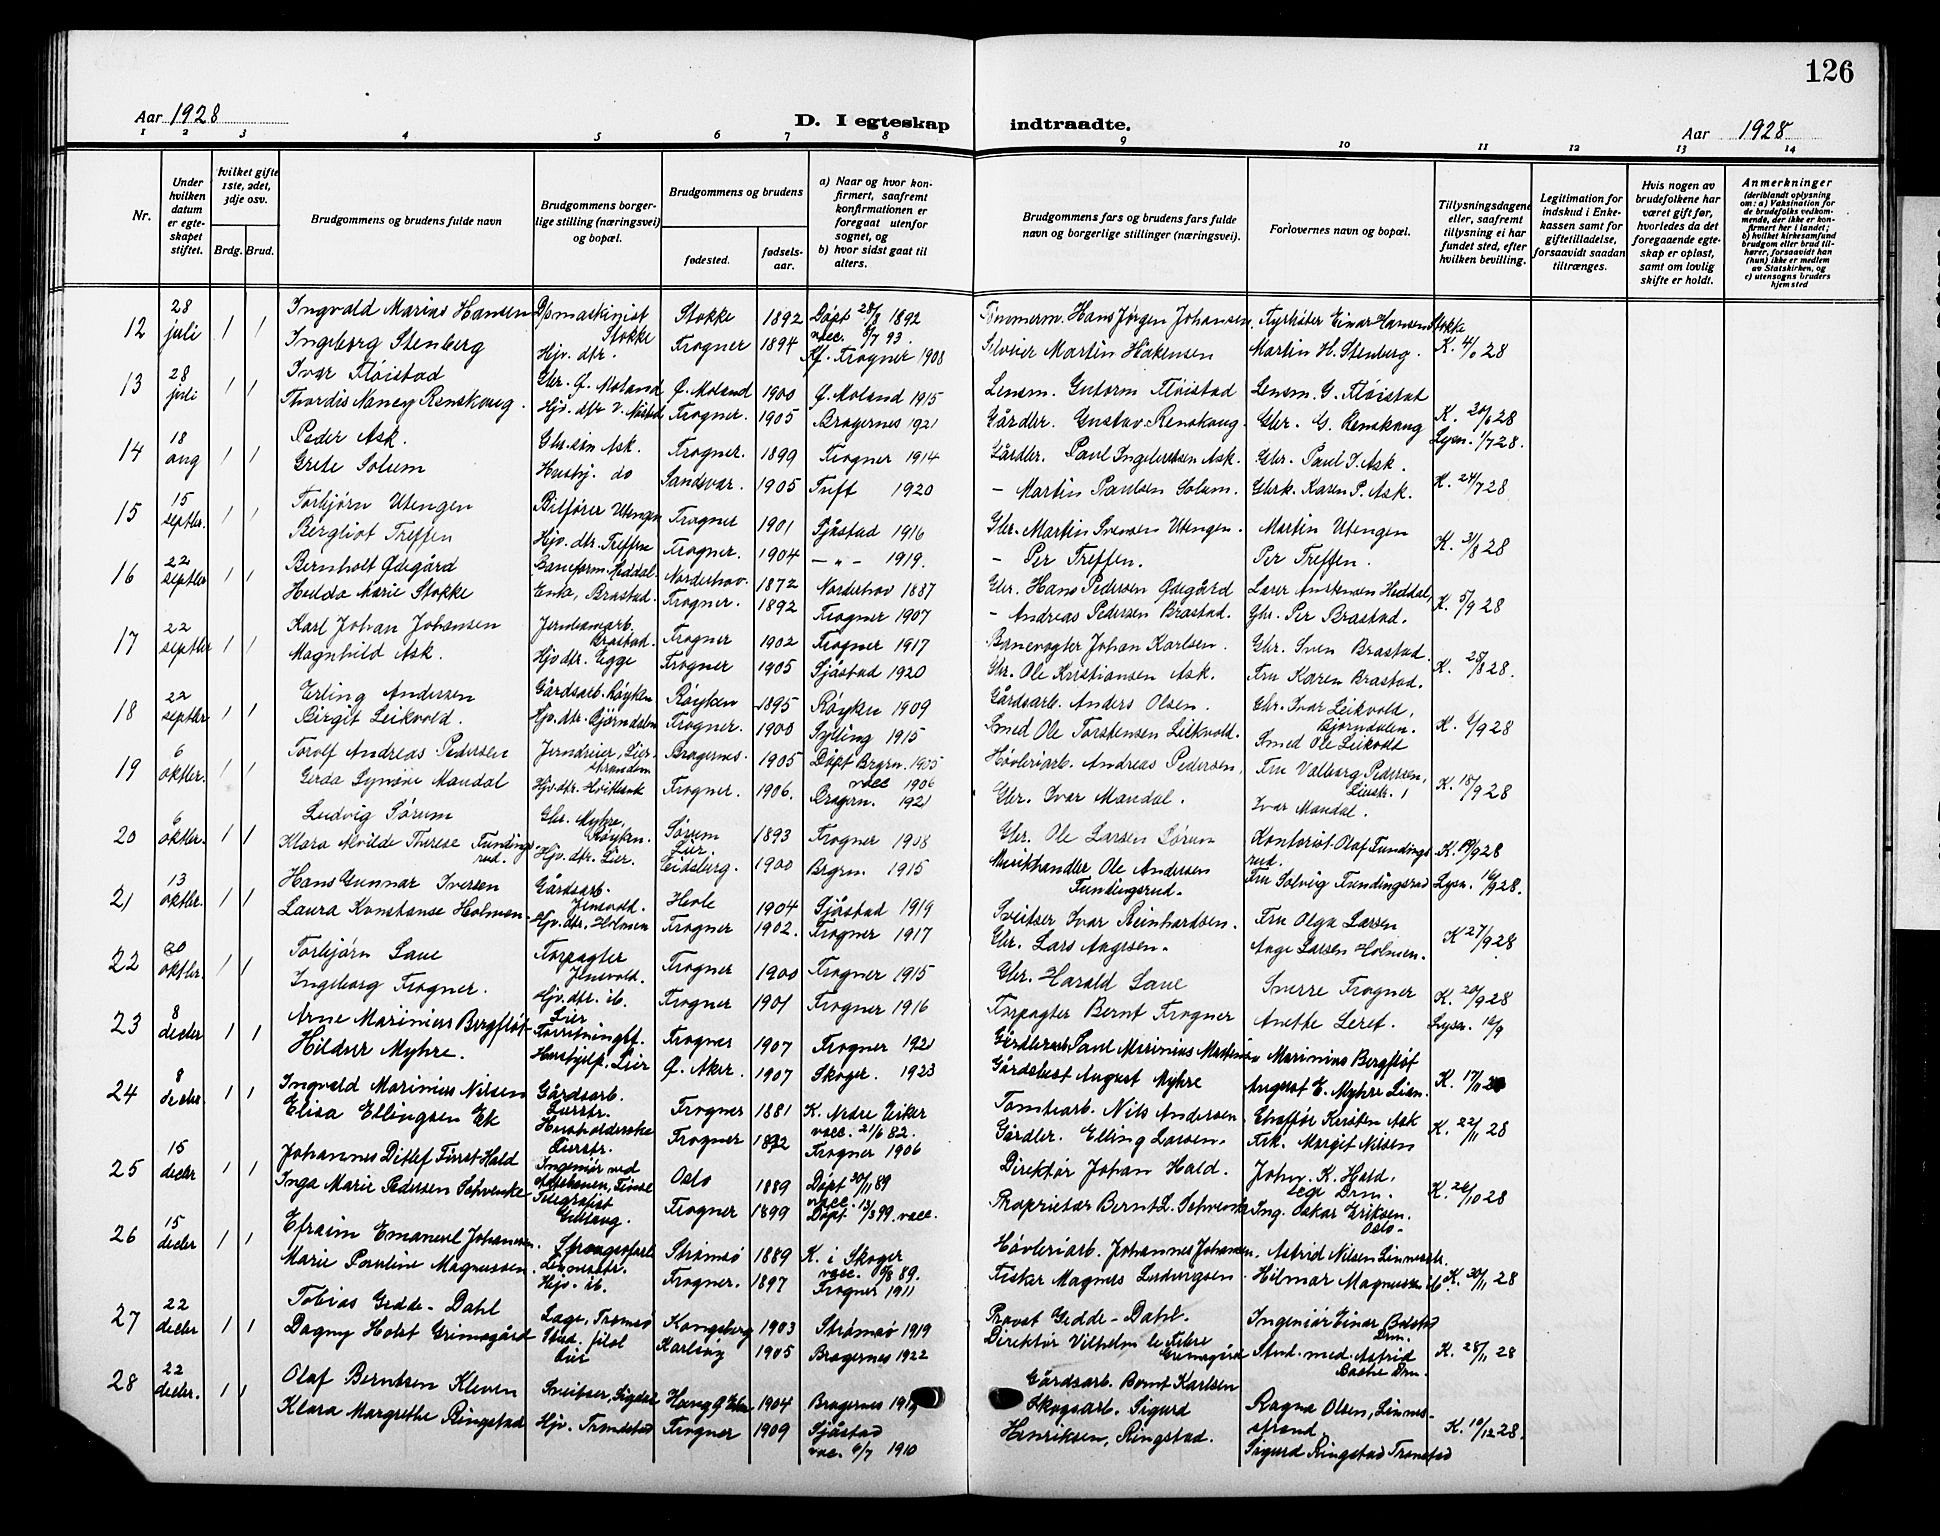 126
Aar 1928
D. I egteskap indtraadte.
Aar 1928
1 2 3 4 5 6 7 8 9 10 11 12 13 14
Nr.
Under hvilken datum er egteskapet stiftet.
hvilket gifte 1ste, 2det, 3dje osv.
Brdg. Brud.
Brudgommens og brudens fulde navn
Brudgommens borgerlige stilling (næringsvei) og bopæl.
Brudgommens og brudens
fødested.
fødselsaar.
a) Naar og hvor konfirmert, saafremt konfirmationen er foregaat utenfor sognet, og
b) hvor sidst gaat til alters.
Brudgommens fars og brudens fars fulde navn og borgerlige stillinger (næringsvei).
Forlovernes navn og bopæl.
Tillysningsdagene eller, saafremt tillysning ei har fundet sted, efter hvilken bevilling.
Legitimation for indskud i Enkekassen samt for giftetilladelse, forsaavidt saadan tiltrænges.
Hvis nogen av brudefolkene har været gift før, hvorledes da det foregaaende egteskap er opløst, samt om lovlig skifte er holdt.
Anmerkninger
(deriblandt oplysning om: a) Vaksination for de brudefolks vedkommende, der ikke er konfirmert her i landet; b) hvilket kirkesamfund brudgom eller brud tilhører, forsaavidt han (hun) ikke er medlem av Statskirken, og c) utensogns bruders hjemsted
12 28 juli 1 1 Ingvald Marius Hansen D/smaskinist Stokke Stokke 1892 Døpt 28/8 1892 vacc. 8/7 93. Tømmerm. Hans Jørgen Johansen. Fyrbøter Einar Hansen Stokke
Ingeborg Stenberg Hjv. dtr. Frogner 1894 Kf. Frogner 1908 Martin Hakensen Martin H. Stenberg. K. 28
13 28 juli 1 1 Ivar Fløistad Gbr. Ø. Moland Ø. Moland 1900 Ø. Moland 1915 Lensm. Gutorm Fløistad Lensm. G. Fløistad
Thordis Nancy Renskoug. Hjv. dtr. Frogner. 1905 Bragernes 1921 Gårdbr. Gustav Renskoug Gbr. G. Renskoug K. 20/6 28 Lysn. 1/7 28.
14 18 aug 1 1 Peder Ask. Gbr.søn Ask. Frogner. 1899 Frogner 1914 Gårdbr. Paul Ingebretsen Ask. Gbr. Paul I. Ask.
Grete Solum Hushj. do Sandsvær. 1905 Tuft 1920 - Martin Paulsen Solum. Gbrk. Karen P. Ask. K. 24/7 28
15 15 septbr. 1 1 Torbjørn Utengen Bilfører Utengen Frogner 1901 Sjåstad 1916 Gbr. Martin Svensen Utengen. Martin Utengen
Bergliot Treffen Hjv. dtr. Treffen Frogner. 1904 - " - 1919. - Per Treffen. Per Treffen. K. 31/8 28
16 22 septbr 1 1 Bernholt Ødegård Baneform. Norderhov. 1872 Norderhov 1887 Gbr. Hans Pedersen Ødegård
Hedda Marie Stokke Enke, Brastad. Frogner. 1892 Frogner 1907 - Andreas Pedersen Brastad. Gbr. Per Brastad. K. 5/9 28
17 22 septbr 1 1 Karl Johan Johansen Jernbanearb. Brastad. Frogner 1902 Frogner 1917 Banevogter Johan Karlsen. Gbr. Sven Brastad.
Magnhild Ask. Hjv. dtr. Egge Frogner 1905 Sjåstad 1920 Gbr. Ole Kristiansen Ask. Fru Karen Brastad. K. 25/8 28.
18 22 septbr 1 1 Erling Andersen Gårdsarb. Røyken Røyken 1895 Røyken 1909 Gårdsarb. Anders Olsen. Gbr. Ivar Leikvold, Bjørndalen.
Birgit Leikvold. Hjv. dtr. Bjørndalen Frogner. 1900 Sylling 1915 Smed Ole Torstensen Leikvold. Smed Ole Leikvold K. 6/9 28
19 6 oktbr. 1 1 Torolf Andreas Pedersen Lierstranden Bragernes. 1905 Døpt Brgrn. 1905 vacc 1906 Høvleriarb. Andreas Pedersen. Fru Valborg Pedersen, Lierstr. 1
Gerda Synøve Mandal Hjv. dtr. Frogner. 1906. Bragern. 1921 Gbr. Ivar Mandal. Ivar Mandal. K. 18/9 28
20 6 oktbr. 1 1 Ludvig Sørum Gbr. Myhre, Røyken. Sørum Lier. 1893 Frogner 1908 Gbr. Ole Larsen Sørum Kontorist Olaf Fundingsrud.
Klara Alvilde Therese Fundingsrud. Hjv. dtr. Lier. Eidsberg 1900 Brgrn. 1915 Musikhandler Ole Andersen Fundingsrud. Fru Solvig Fundingsrud K. 19/9 28 Lysn. 16/9 28.
21 13 oktbr. 1 1 Hans Gunnar Iversen Gårdsarb. Jensvold. Hole 1904 Sjåstad 1919 Sveitser Ivar Reinhardsen. Fru Olga Larsen
Laura Konstanse Holmen. Hjv. dtr. Holmen Frogner 1902. Frogner 1917 Gbr. Lars Aagesen. Aage Larsen Holmen. K 27/9 28
22 20 oktbr. 1 1 Torbjørn Laue Forpagter Jensvold. Frogner 1900 Frogner 1915 Gbr. Harald Laue Sverre Frogner
Ingeborg Frogner. Hjv. dtr. ib. Frogner 1901 Frogner 1916 Forpagter Bernt Frogner Anette Leret. K. 20/9 28 Lysn. 16/9
23 8 decbr 1 1 Arne Marinius Bergfløt Lier Forretningsf. Frogner 1907 Frogner 1921 Paul Marinius Marinius Bergfløt
Hildur Myhre. Hushjelp, Lier Ø. Aker. 1907 Skoger. 1923 Gårdsbest August Myhre August E. Myhre Lier. K. 17/11 28
24 8 decbr. 1 1 Ingvald Marinius Nilsen Gårdsarb. Lierstr. Frogner 1881 K. Nedre Eiker vacc. 21/6 82. Tomtearb. Nils Andersen Chauffør Kirsten Ask
Elisa Ellingsen Ek Husholderske Lierstr. Frogner 1892 Frogner 1906 Gårdbr. Elling Larsen. Frk. Margit Nilsen K. 22/11 28
25 15 decbr 1 1 Johannes Ditlef Fürst Hald Ingeniør ved Oslo 1889 Døpt 30/11 89 vacc. Direktør Johan Hald. John. K. Hald. Drm.
Inga Marie Pedersen Schvencke Telegrafist Gilhaug. Frogner 1899 Døpt 13/3 99. vacc. Proprietær Bernt L. Schvencke Ing. Oskar Eriksen. Oslo. K. 26/10 28
26 15 decbr 1 1 Efraim Emanuel Johansen. Sprængstofarb. Linnesstr. Strømsø 1889 K. i Skoger vacc. 9/8 89. Høvleriarb. Johannes Johansen. Astrid Nilsen Linnesstr.
Marie Pouline Magnussen. Hjv. ib. Frogner. 1897 Frogner 1911 Fisker Magnus Ludvigsen. Hilmar Magnussen ib K. 30/11 28
27 22 decbr 1 1 Tobias Gedde-Dahl Læge, Tromsø Kongsberg 1903 Strømsø 1919 Provst Gedde-Dahl. Ingeniør Einar Drm.
Dagny Holst Grimsgård Stud. filol Lier Karlsøy 1905 Bragernes 1922 Direktør Vilhelm le Febre Grimsgård Stud. med. Astrid Bache Drm. K. 28/11 28
28 22 decbr. 1 1 Olaf Berntsen Kleven Sveitser, Sigdal Haug Ø. Eiker 1904 Bragernes 1919 Gårdsarb. Bernt Karlsen Ragna Olsen, Linnesstrand.
Klara Margrethe Ringstad Hjv. Tronstad Frogner 1909 Sjåstad vac. 6/7 1910 Skogsarb. Sigurd Henriksen, Ringstad. Sigurd Ringstad Tronstad K. 10/12 28.